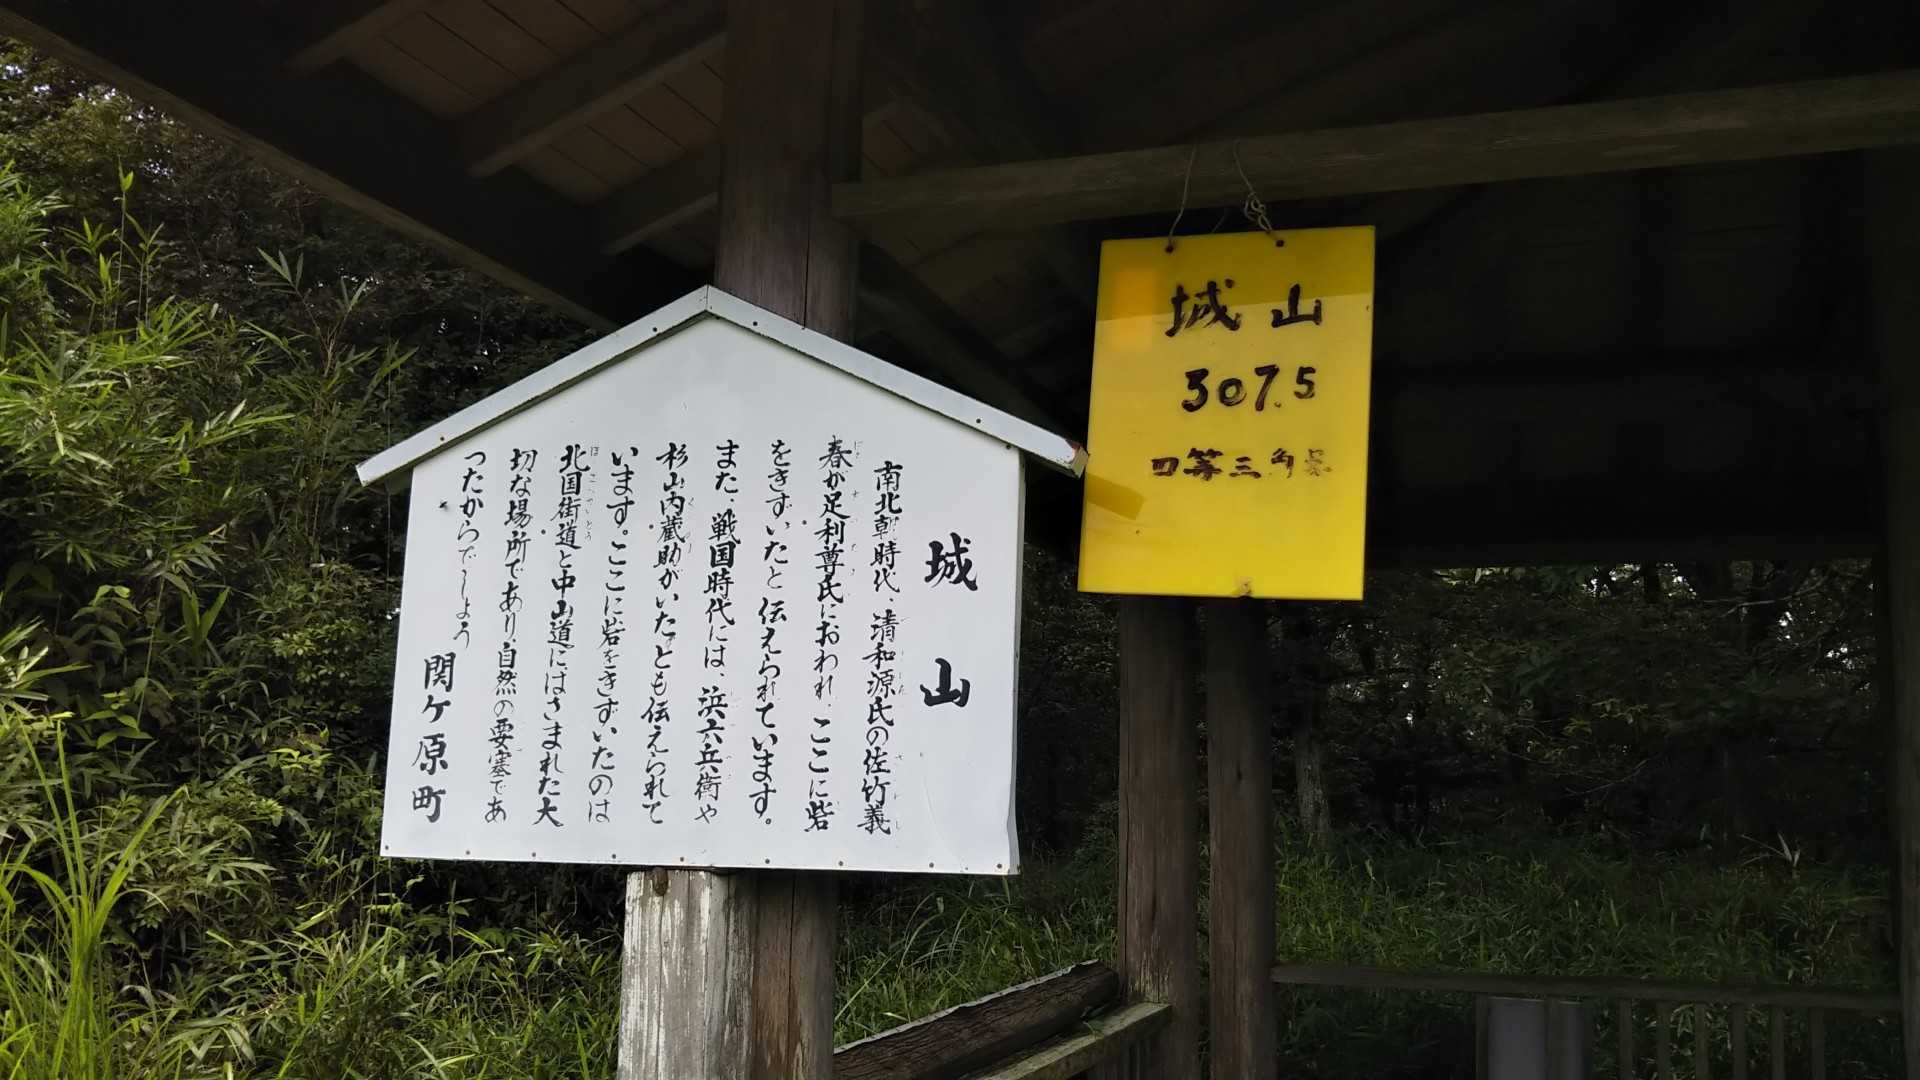 城山
南北朝時代、清和源氏の佐竹義
春が足利尊氏におわれ、ここに砦
をきずいたと伝えられています。
また、戦国時代には、浜六兵衛や
杉山内蔵助がいたとも伝えられて
います。ここに砦をきずいたのは
北国街道と中山道に、はさまれた大
切な場所であり、自然の要塞であ
ったからでしょう
関ケ原町
城山
307.5
四等三角点